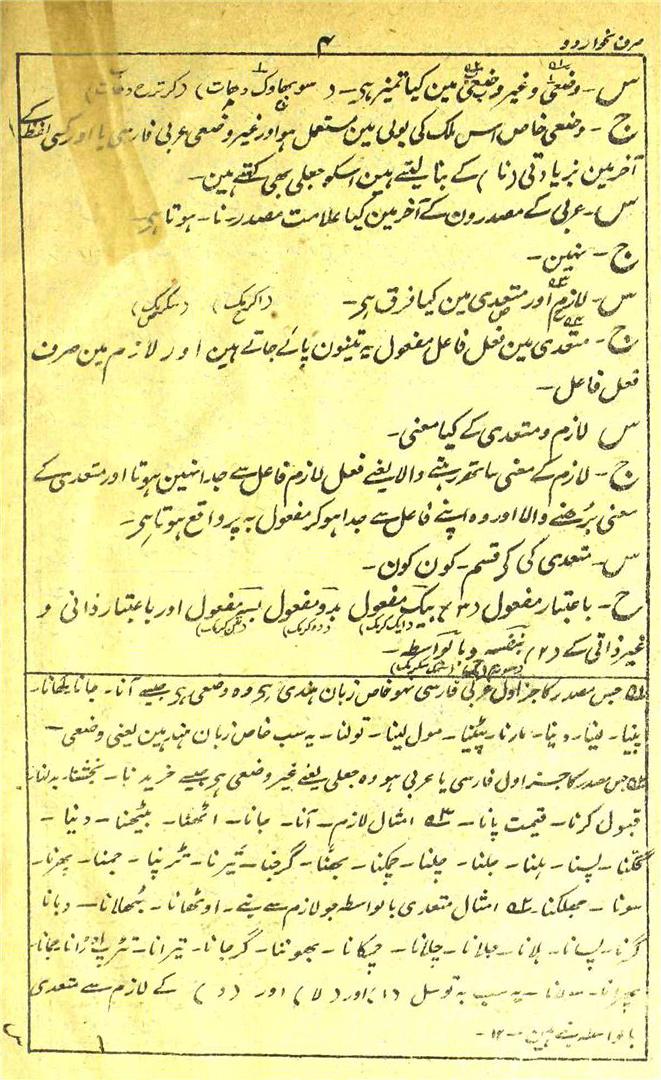 صرف نحو اردو
۴
س - وضعی و غیر وضعی مین کیا تمیز ہی - ( سوبھاوک دھات ) ( کرترم دھات )
ج - وضعی خاص اس ملک کی بولی مین مستعمل ہو اور غیر وضعی عربی فارسی یا اور کسی لفظ کے
آخر مین بزیادتی ( نا ) کے بنا لیتے ہین اسکو جعلی بھی کہتے ہین -
س - عربی کے مصدرون کے آخر مین کیا علامت مصدر - نا - ہوتا ہی -
ج - نہین -
س - لازم اور متعدی مین کیا فرق ہی - ( اکرمک ) ( سکرمک )
ج - متعدی مین فعل فاعل مفعول یہ تینون پائے جاتے ہین اور لازم مین صرف
فعل فاعل -
س لازم و متعدی کے کیا معنی -
ج - لازم کے معنی ساتھ رہنے والا یعنے فعل لازم فاعل سے جدا نہین ہوتا اور متعدی کے
معنی بڑھنے والا اور وہ اپنے فاعل سے جدا ہو کر مفعول بہ پر واقع ہوتا ہی -
س - متعدی کی کَے قسم - کون کون -
ج - باعتبار مفعول ( ۳ ) بیک مفعول بدو مفعول بسہ مفعول اور باعتبار ذاتی و
غیر ذاتی کے ( ۲ ) بنفسہ و بالواسطہ -
۱ جس مصدر کا جز اول عربی فارسی نہو خاص زبان ہندی ہی وہ وضعی ہی جیسے آنا - جانا - کھانا -
پینا - لینا - دینا - مارنا - پیٹنا - مول لینا - تولنا - یہ سب خاص زبان ہند ہین یعنی وضعی -
۲ جس مصدر کا جز اول فارسی یا عربی ہو وہ جعلی یعنے غیر وضعی ہی جیسے خریدنا - بخشنا - بدلنا -
قبول کرنا - قیمت پانا - ۳ امثال لازم - آنا - جانا - اٹھنا - بیٹھنا - دبنا -
بسنا - ہلنا - جلنا - چلنا - چمکنا - بھننا - گرجنا - تیرنا - تڑپنا - جمنا - پھرنا -
سونا - جھلکنا - ۴ امثال متعدی بالواسطہ جو لازم سے بنے - اوٹھانا - بٹھلانا - دبانا
بسانا - ہلانا - جلانا - چلانا - چمکانا - بھوننا - گرجانا - تیرانا - جمانا -
پھرانا - سولانا - یہ سب بہ توسل ( ا ) اور ( لا ) اور ( و ) کے لازم سے متعدی
بالواسطہ بنے ہین - ۱۲ -